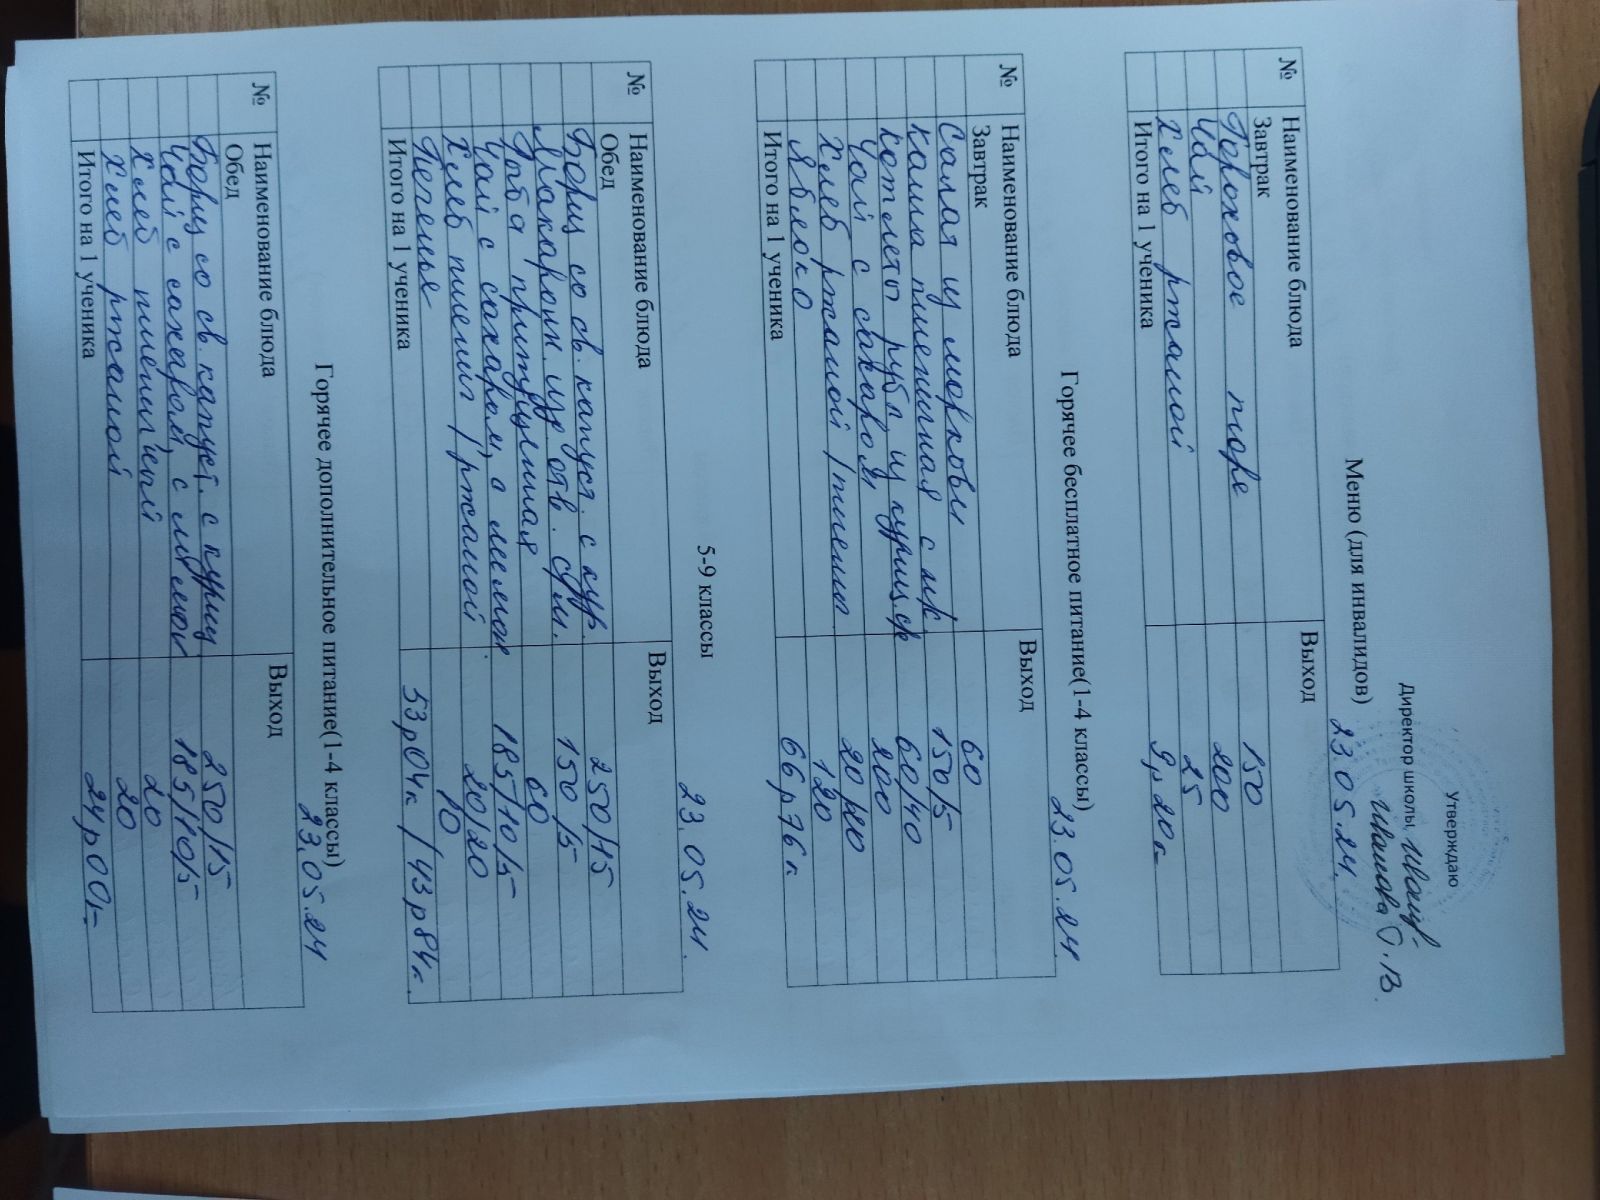 Утверждаю
Директор школы,
Иванова О.В.
Меню (для инвалидов) 23.05.24
№ Наименование блюда Выход
Завтрак
Гороховое пюре 150
Чай 200
Хлеб ржаной 25
Итого на 1 ученика 9р20к
Горячее бесплатное питание(1-4 классы) 23.05.24
№ Наименование блюда Выход
Завтрак
Салат из моркови 60
Каша пшеничная с м/с 150/5
Котлеты руб. из курицы 60/40
Чай с сахаром, 200
Хлеб ржаной /пшенич 20/20
Яблоко 120
Итого на 1 ученика 66р76к
5-9 классы 23.05.24.
№ Наименование блюда Выход
Обед
Борщ со св. капуст. с кур. 250/15
Макарон. из. отв. с/м. 150/5
Рыба припущенная 60
Чай с сахаром, с лимон. 185/10/5
Хлеб пшенич /ржаной 20/20
Печенье 10
Итого на 1 ученика 53р04к / 43р84к.
Горячее дополнительное питание(1-4 классы) 23.05.24
№ Наименование блюда Выход
Обед
Борщ со св. капуст. с куриц 250/15
Чай с сахаром, с лимон 185/10/5
Хлеб пшеничный 20
Хлеб ржаной 20
Итого на 1 ученика 24р00к